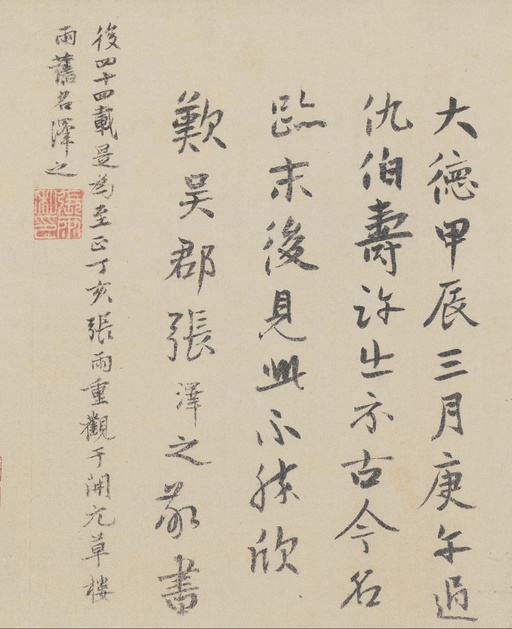 大德甲辰三月庚午過
仇伯壽許出示古今名
跡末後見此不勝欣
歎吳郡張澤之敬書
後四十四載是為至正丁亥張雨重觀于開元草樓
雨舊名澤之